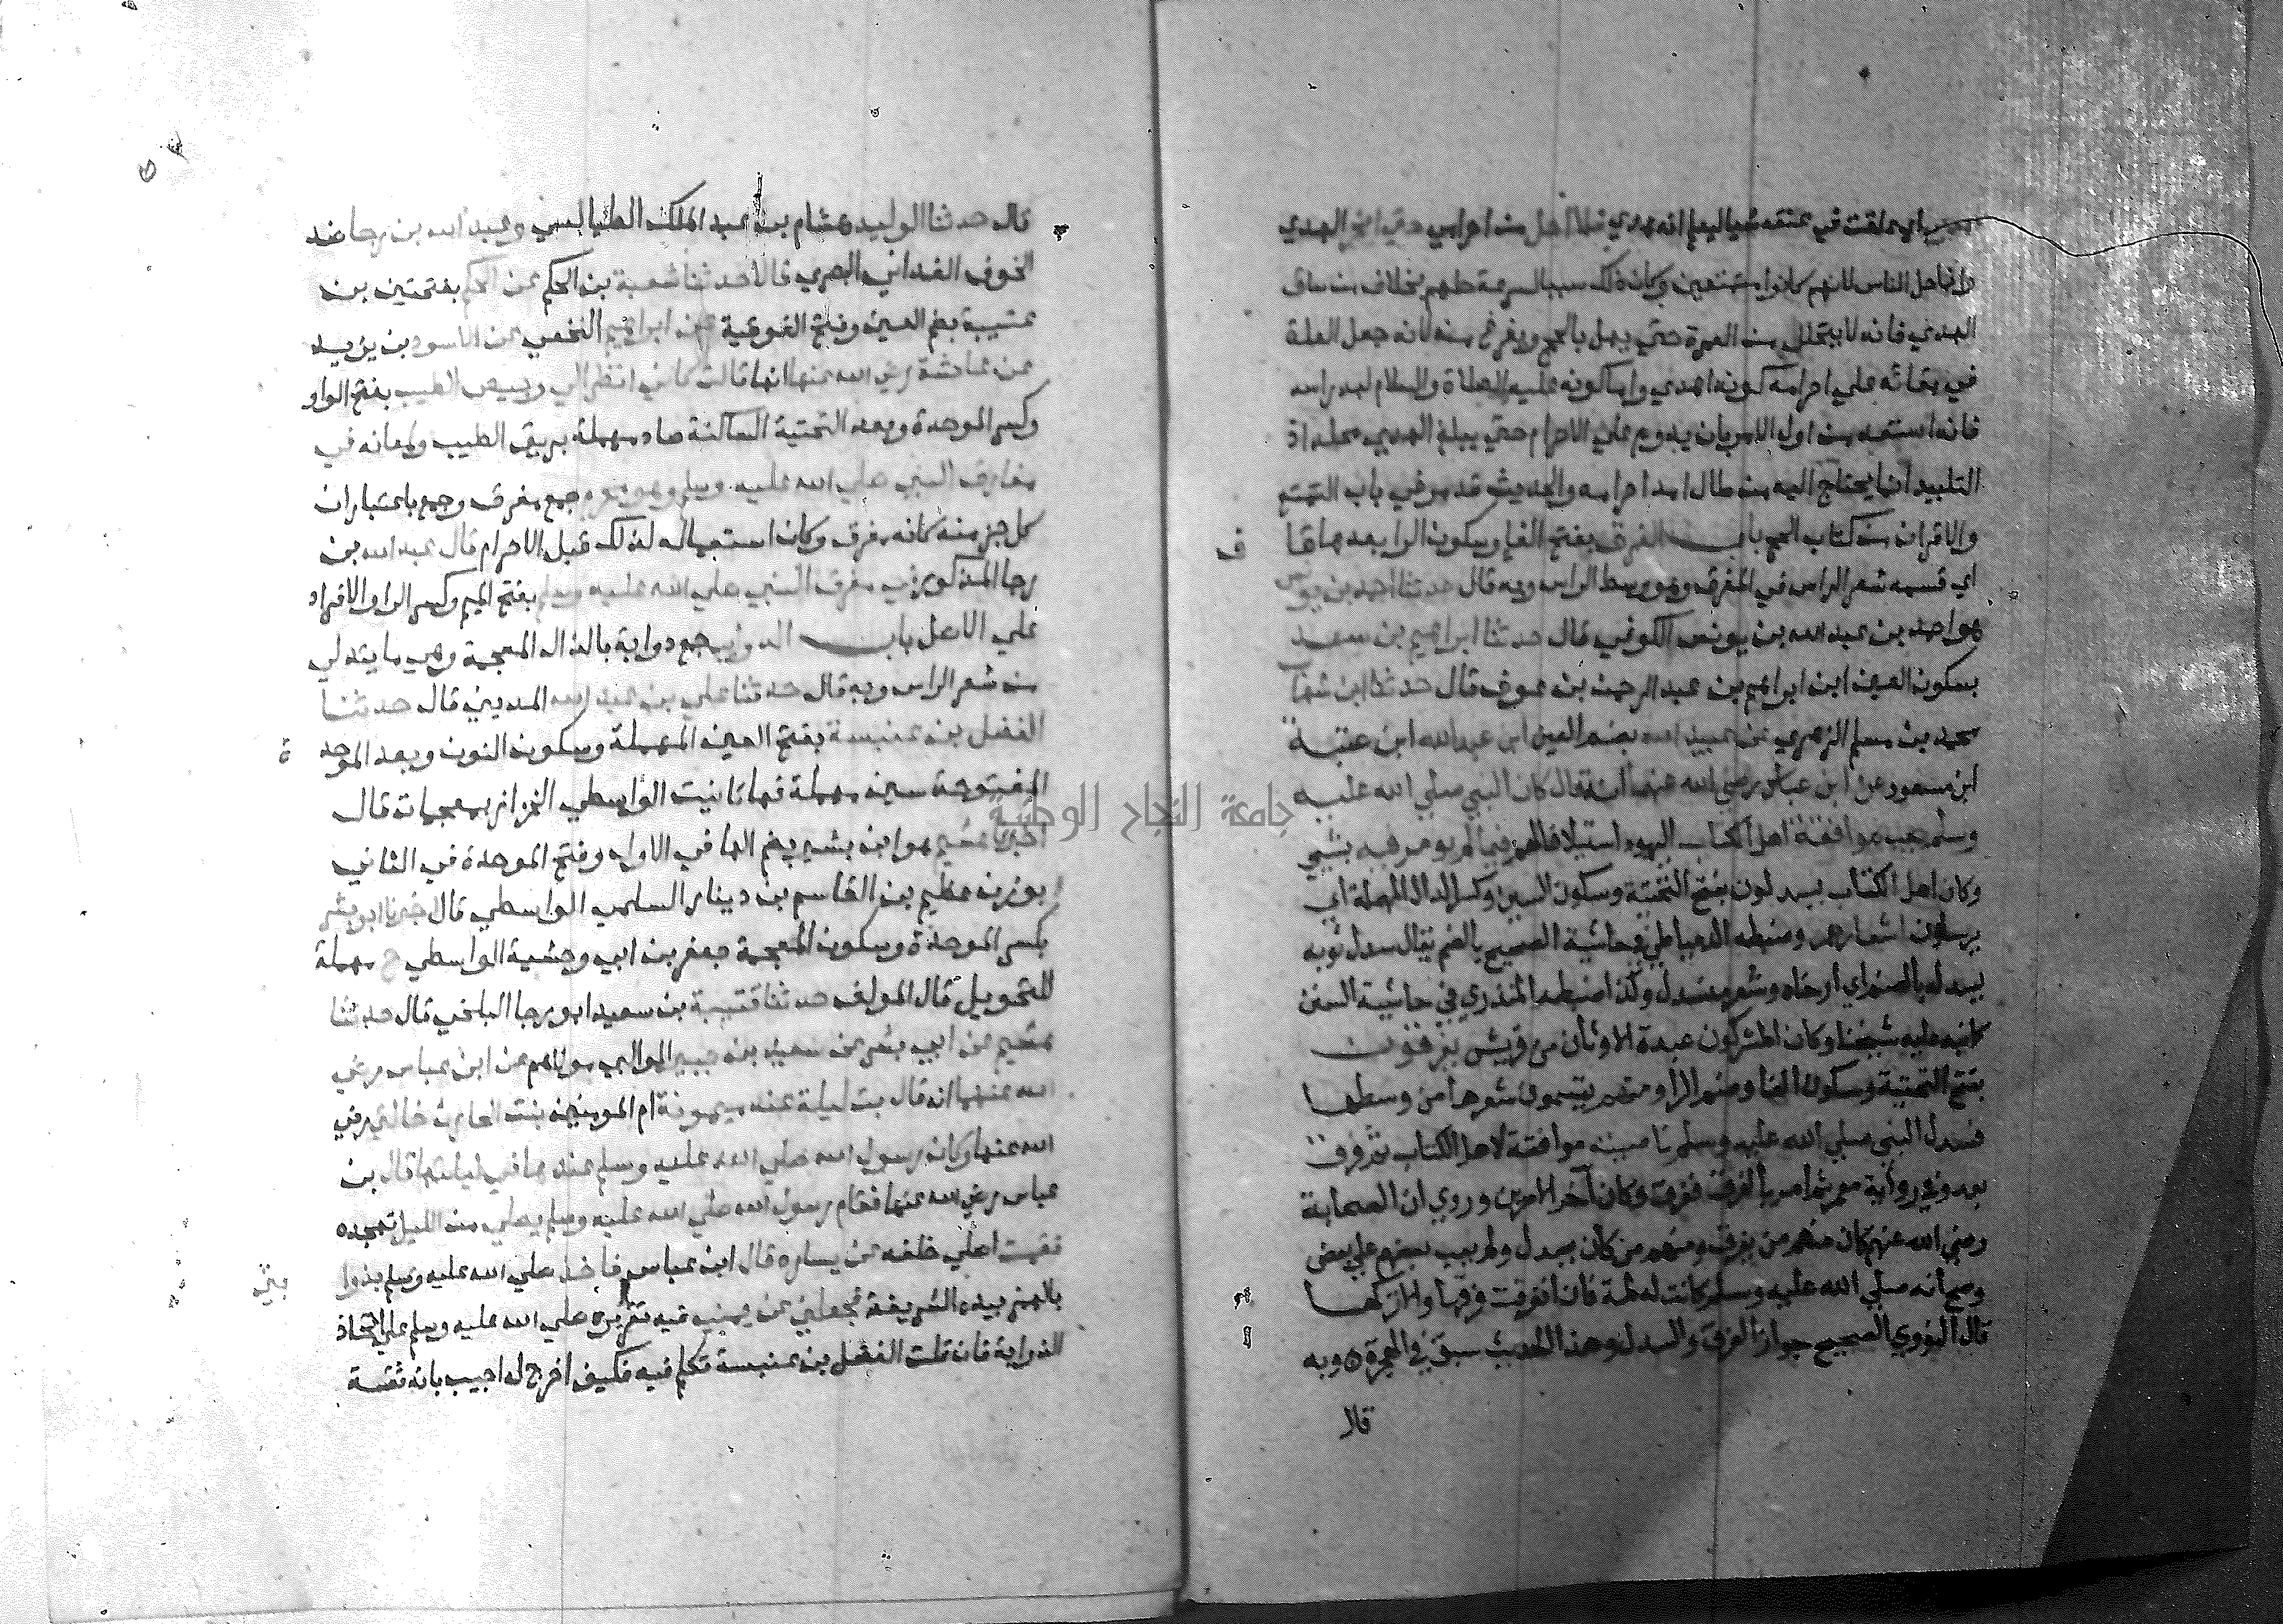 اي علقت في عنقه شيا ليعلم انه هدي فلا احل من احرامي حتي انحر الهدي
وانما حل الناس لانهم كانوا متمتعين وكان ذلك سببا لسرعة حلهم بخلاف من ساق
الهدي فانه لا يتحلل من العمرة حتي يهل بالحج ويفرغ منه لانه جعل العلة
في بقائه علي احرامه كونه اهدي واما كونه عليه الصلاة والسلام لبد راسه
فانه استعد من اول الامر بان يدوم علي الاحرام حتي يبلغ الهدي محله اذ
التلبيد انما يحتاج اليه من طال امد احرامه والحديث قد مر في باب التمتع
والاقران من كتاب الحج باب الفرق بفتح الفا وسكون الرا بعدها قا
ف
اي قسمه شعر الراس في المفرق وهو وسط الراس وبه قال حدثنا احمد بن يونس
هو احمد بن عبد الله بن يونس الكوفي قال حدثنا ابراهيم بن سعد
بسكون العين ابن ابراهيم بن عبد الرحمن بن عوف قال حدثنا ابن شهاب
محمد بن مسلم الزهري عن عبيد الله بضم العين ابن عبد الله ابن عتبة
ابن مسعود عن ابن عباس رضي الله عنهما انه قال كان النبي صلي الله عليه
وسلم يحب موافقة اهل الكتاب اليهود استيلافا لهم فيما لم يومر فيه بشي
وكان اهل الكتاب يسدلون بفتح التحتية وسكون السين وكسر الدال المهملة اي
يرسلون اشعارهم وضبطه الدمياطي في حاشية الصحيح بالضم يقال سدل ثوبه
يسدله بالضم اي ارخاه وشعر منسدل وكذا ضبطه المنذري في حاشية السنن
كما نبه عليه شيخنا وكان المشركون عبدة الاوثان من قريش يفرقون
بفتح التحتية وسكون الفا وضم الرا ومنهم يقسمون شعرها من وسطها
فسدل النبي صلي الله عليه وسلم ناصيته موافقة لاهل الكتاب ثم فرق
بعد وفي رواية معمر ثم امر بالفرق ففرق وكان آخر الامرين وروي ان الصحابة
رضي الله عنهم كان منهم من يفرق ومنهم من كان يسدل ولم يعب بعضهم علي بعض
وصح انه صلي الله عليه وسلم كانت له لمة فان انفرقت فرقها والا تركها
قال النووي الصحيح جواز الفرق والسدل وهذا الحديث سبق في الهجرة وبه
قال
قال حدثنا الوليد هشام بن عبد الملك الطيالسي وعبد الله بن رجا ضد
الخوف الغداني البصري قالا حدثنا شعبة بن الحكم عن الحكم بفتحتين بن
عتيبة بضم العين وفتح الفوقية عن ابراهيم النخعي عن الاسود بن يزيد
عن عائشة رضي الله عنها انها قالت كاني انظر الي وبيص الطيب بفتح الواو
وكسر الموحدة وبعد التحتية الساكنة صاد مهملة بريق الطيب ولمعانه في
مفارق النبي صلي الله عليه وسلم وهو محرم جمع مفرق وجمع باعتبار ان
كل جز منه كانه مفرق وكان استعماله لذلك قبل الاحرام قال عبد الله بن
رجا المذكور في مفرق النبي صلي الله عليه وسلم بفتح الميم وكسر الرا والافراد
علي الاصل باب الذوايب جمع ذوابة بالذال المعجمة وهي ما يتدلي
من شعر الراس وبه قال حدثنا علي بن عبد الله المديني قال حدثنا
الفضل بن عنبسة بفتح العين المهملة وسكون النون وبعد الموحد
ة
المفتوحة سين مهملة فها تانيث الواسطي الخزاز بمعجمات قال
اخبرنا هشيم هو ابن بشير بضم الها في الاول وفتح الموحدة في الثاني
بوزن عظيم بن القاسم بن دينار السلمي الواسطي قال اخبرنا ابو بشر
بكسر الموحدة وسكون المعجمة جعفر بن ابي وحشية الواسطي ح مهملة
للتحويل قال المولف حدثنا قتيبة بن سعيد ابو رجا البلخي قال حدثنا
هشيم عن ابي بشر عن سعيد بن جبير الوالبي مولاهم عن ابن عباس رضي
الله عنهما انه قال بت ليلة عند ميمونة ام المومنين بنت الحارث خالتي رضي
الله عنها وكان رسول الله صلي الله عليه وسلم عندها في ليلتها قال بن
عباس رضي الله عنهما فقام رسول الله صلي الله عليه وسلم يصلي من الليل تهجده
فقمت اصلي خلفه عن يساره قال ابن عباس فاخذ صلي الله عليه وسلم بذوا
بتي
بالهمز بيده الشريفة فجعلني عن يمينه فيه تقريره صلي الله عليه وسلم علي اتخاذ
الذوابة فان قلت الفضل بن عنبسة تكلم فيه فكيف اخرج له اجيب بانه ثقة
جامعة النجاح الوطنية